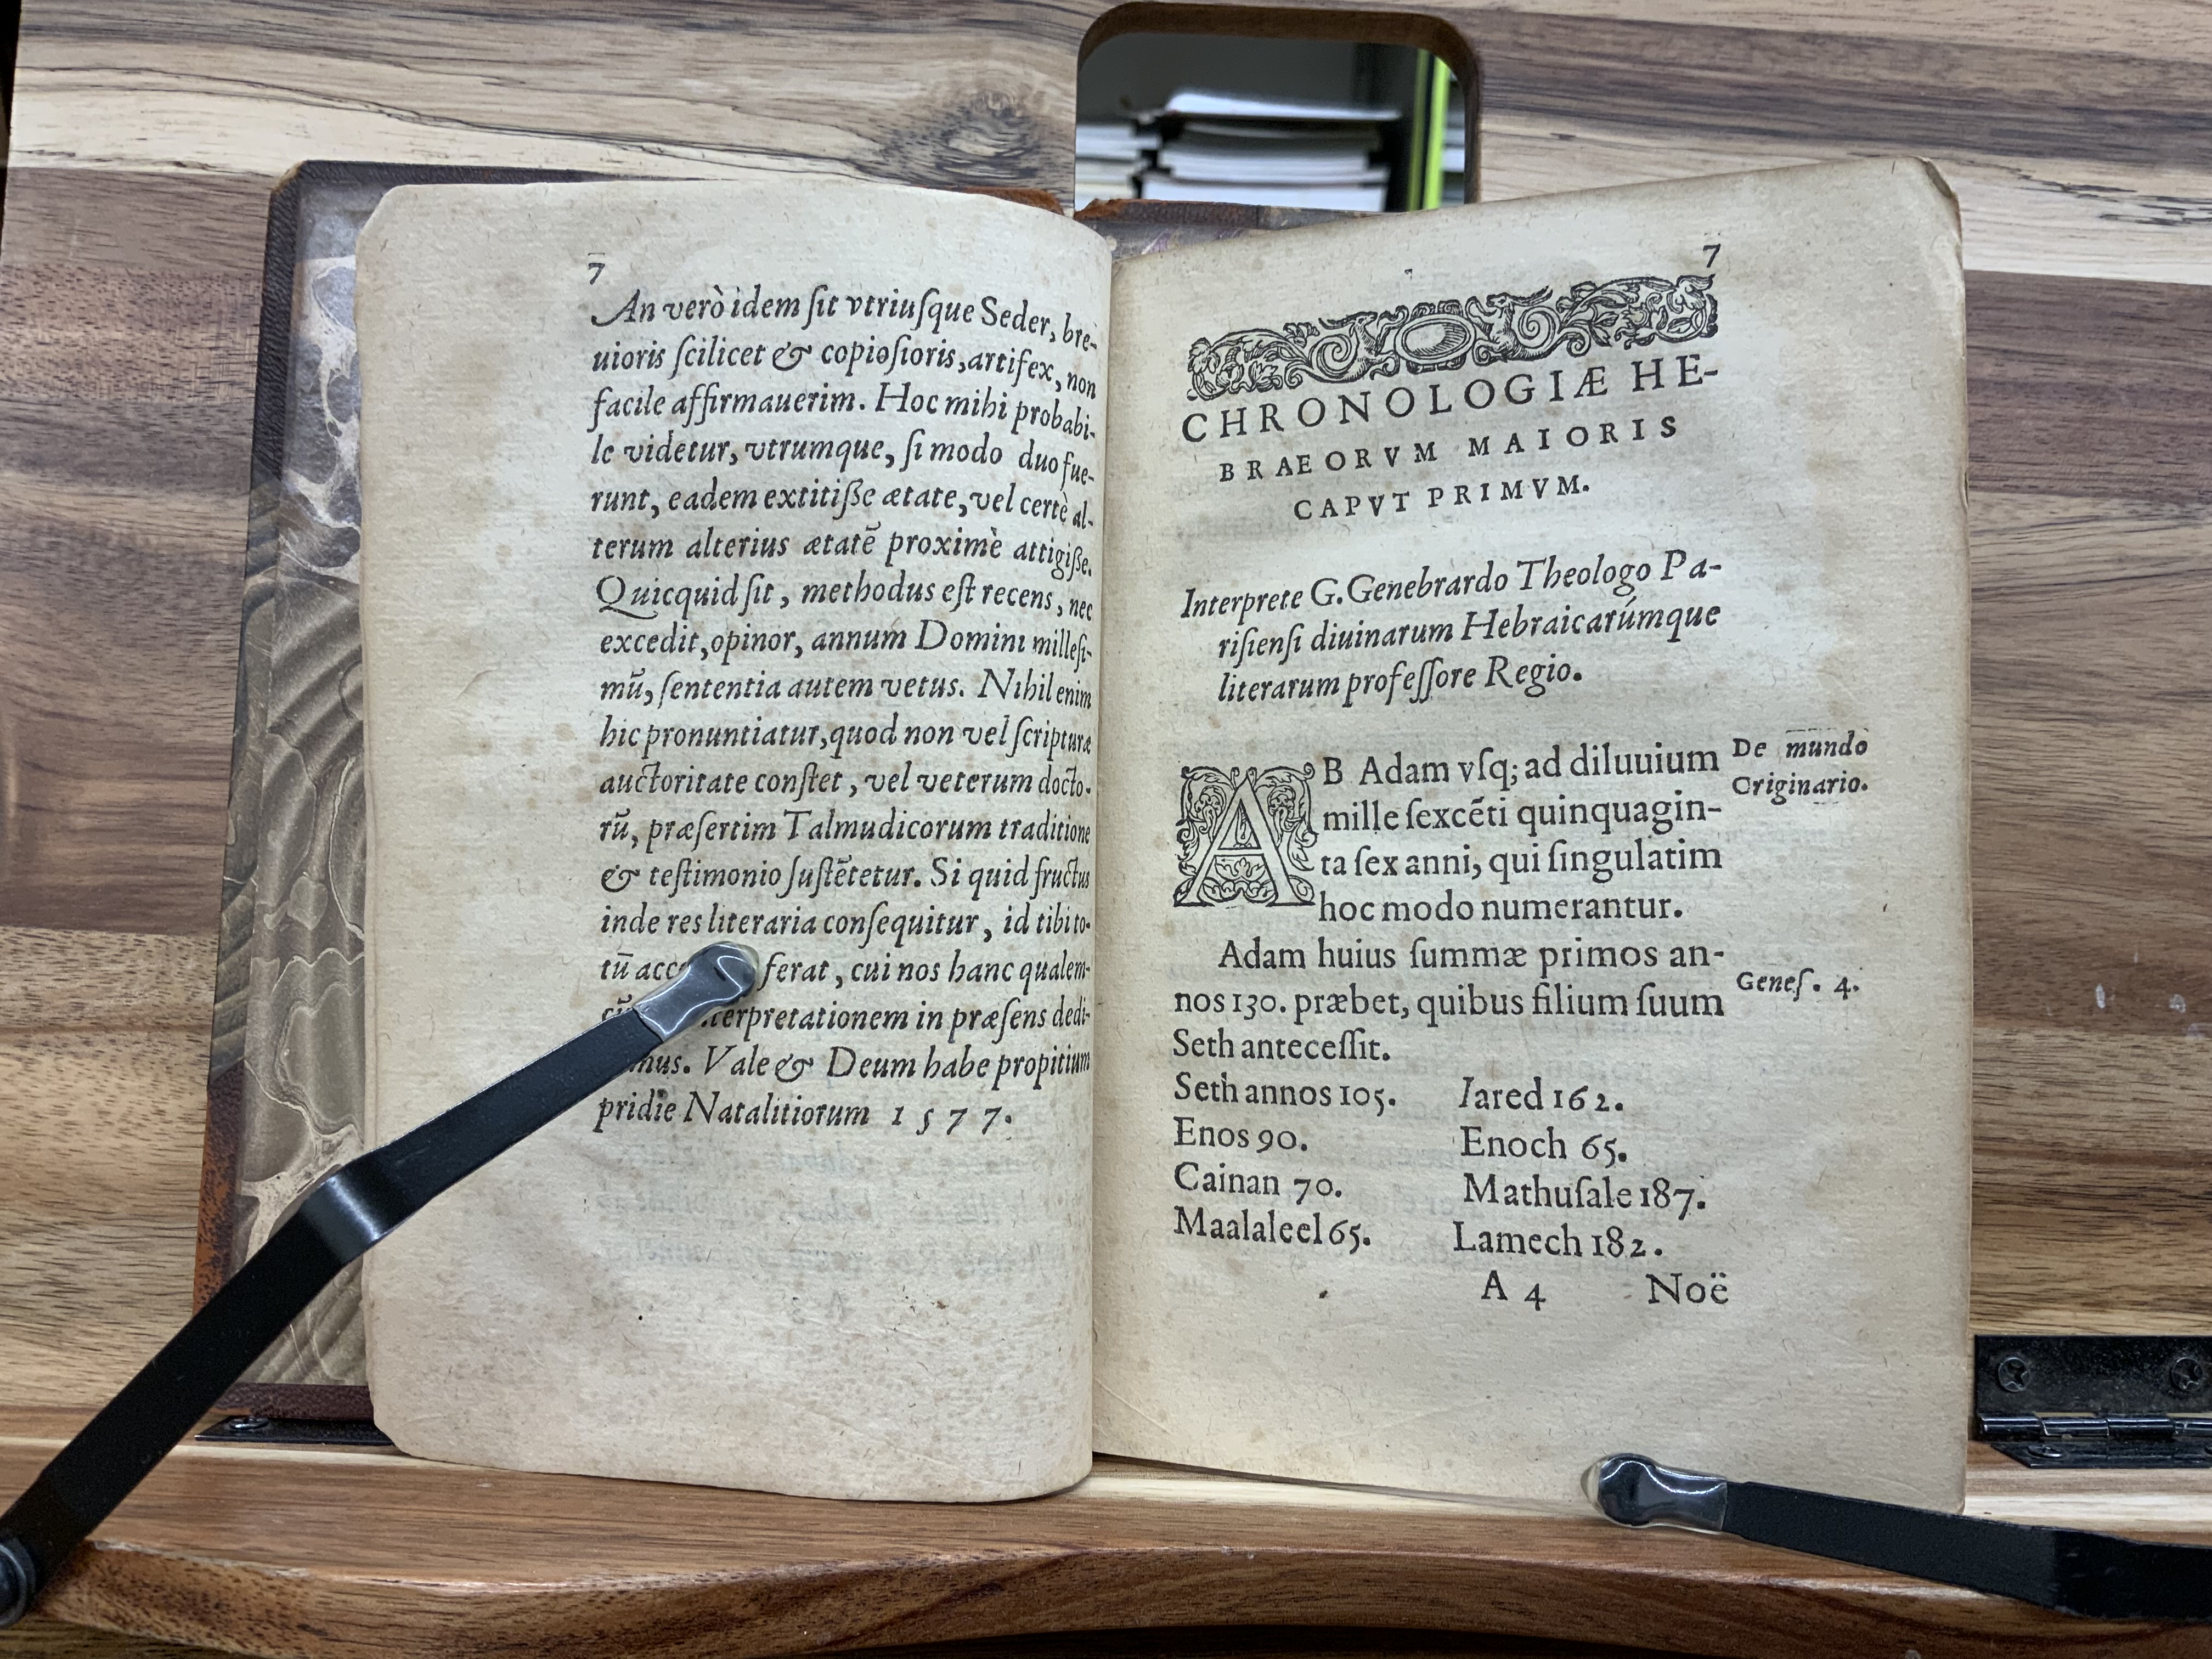 7
An verò idem ſit vtriuſque Seder, bre-
uioris ſcilicet & copioſioris, artifex, non
facile affirmauerim. Hoc mihi probabi-
le videtur, vtrumque, ſi modo duo fue-
runt, eadem extitiſſe ætate, vel certè al-
terum alterius ætatē proximè attigiſſe.
Quicquid ſit, methodus eſt recens, nec
excedit, opinor, annum Domini milleſi-
mū, ſententia autem vetus. Nihil enim
hic pronuntiatur, quod non vel ſcripturæ
auctoritate conſtet, vel veterum docto-
rū, præſertim Talmudicorum traditione
& teſtimonio ſuſtētetur. Si quid fructus
inde res literaria conſequitur, id tibi to-
tū ferat, cui nos hanc qualem-
in præſens dedi-
Vale & Deum habe propitium
pridie Natalitiorum 1577.
7
CHRONOLOGIÆ HE-
BRAEORVM MAIORIS
CAPVT PRIMVM.
Interprete G. Genebrardo Theologo Pa-
riſienſi diuinarum Hebraicarúmque
literarum profeſſore Regio.
AB Adam vſq; ad diluuium
mille ſexcēti quinquagin-
ta ſex anni, qui ſingulatim
hoc modo numerantur.
De mundo
Originario.
Adam huius ſummæ primos an-
nos 130. præbet, quibus filium ſuum
Seth anteceſſit.
Geneſ. 4.
Seth annos 105.
Enos 90.
Cainan 70.
Maalaleel 65.
Iared 162.
Enoch 65.
Mathuſale 187.
Lamech 182.
A 4 Noë